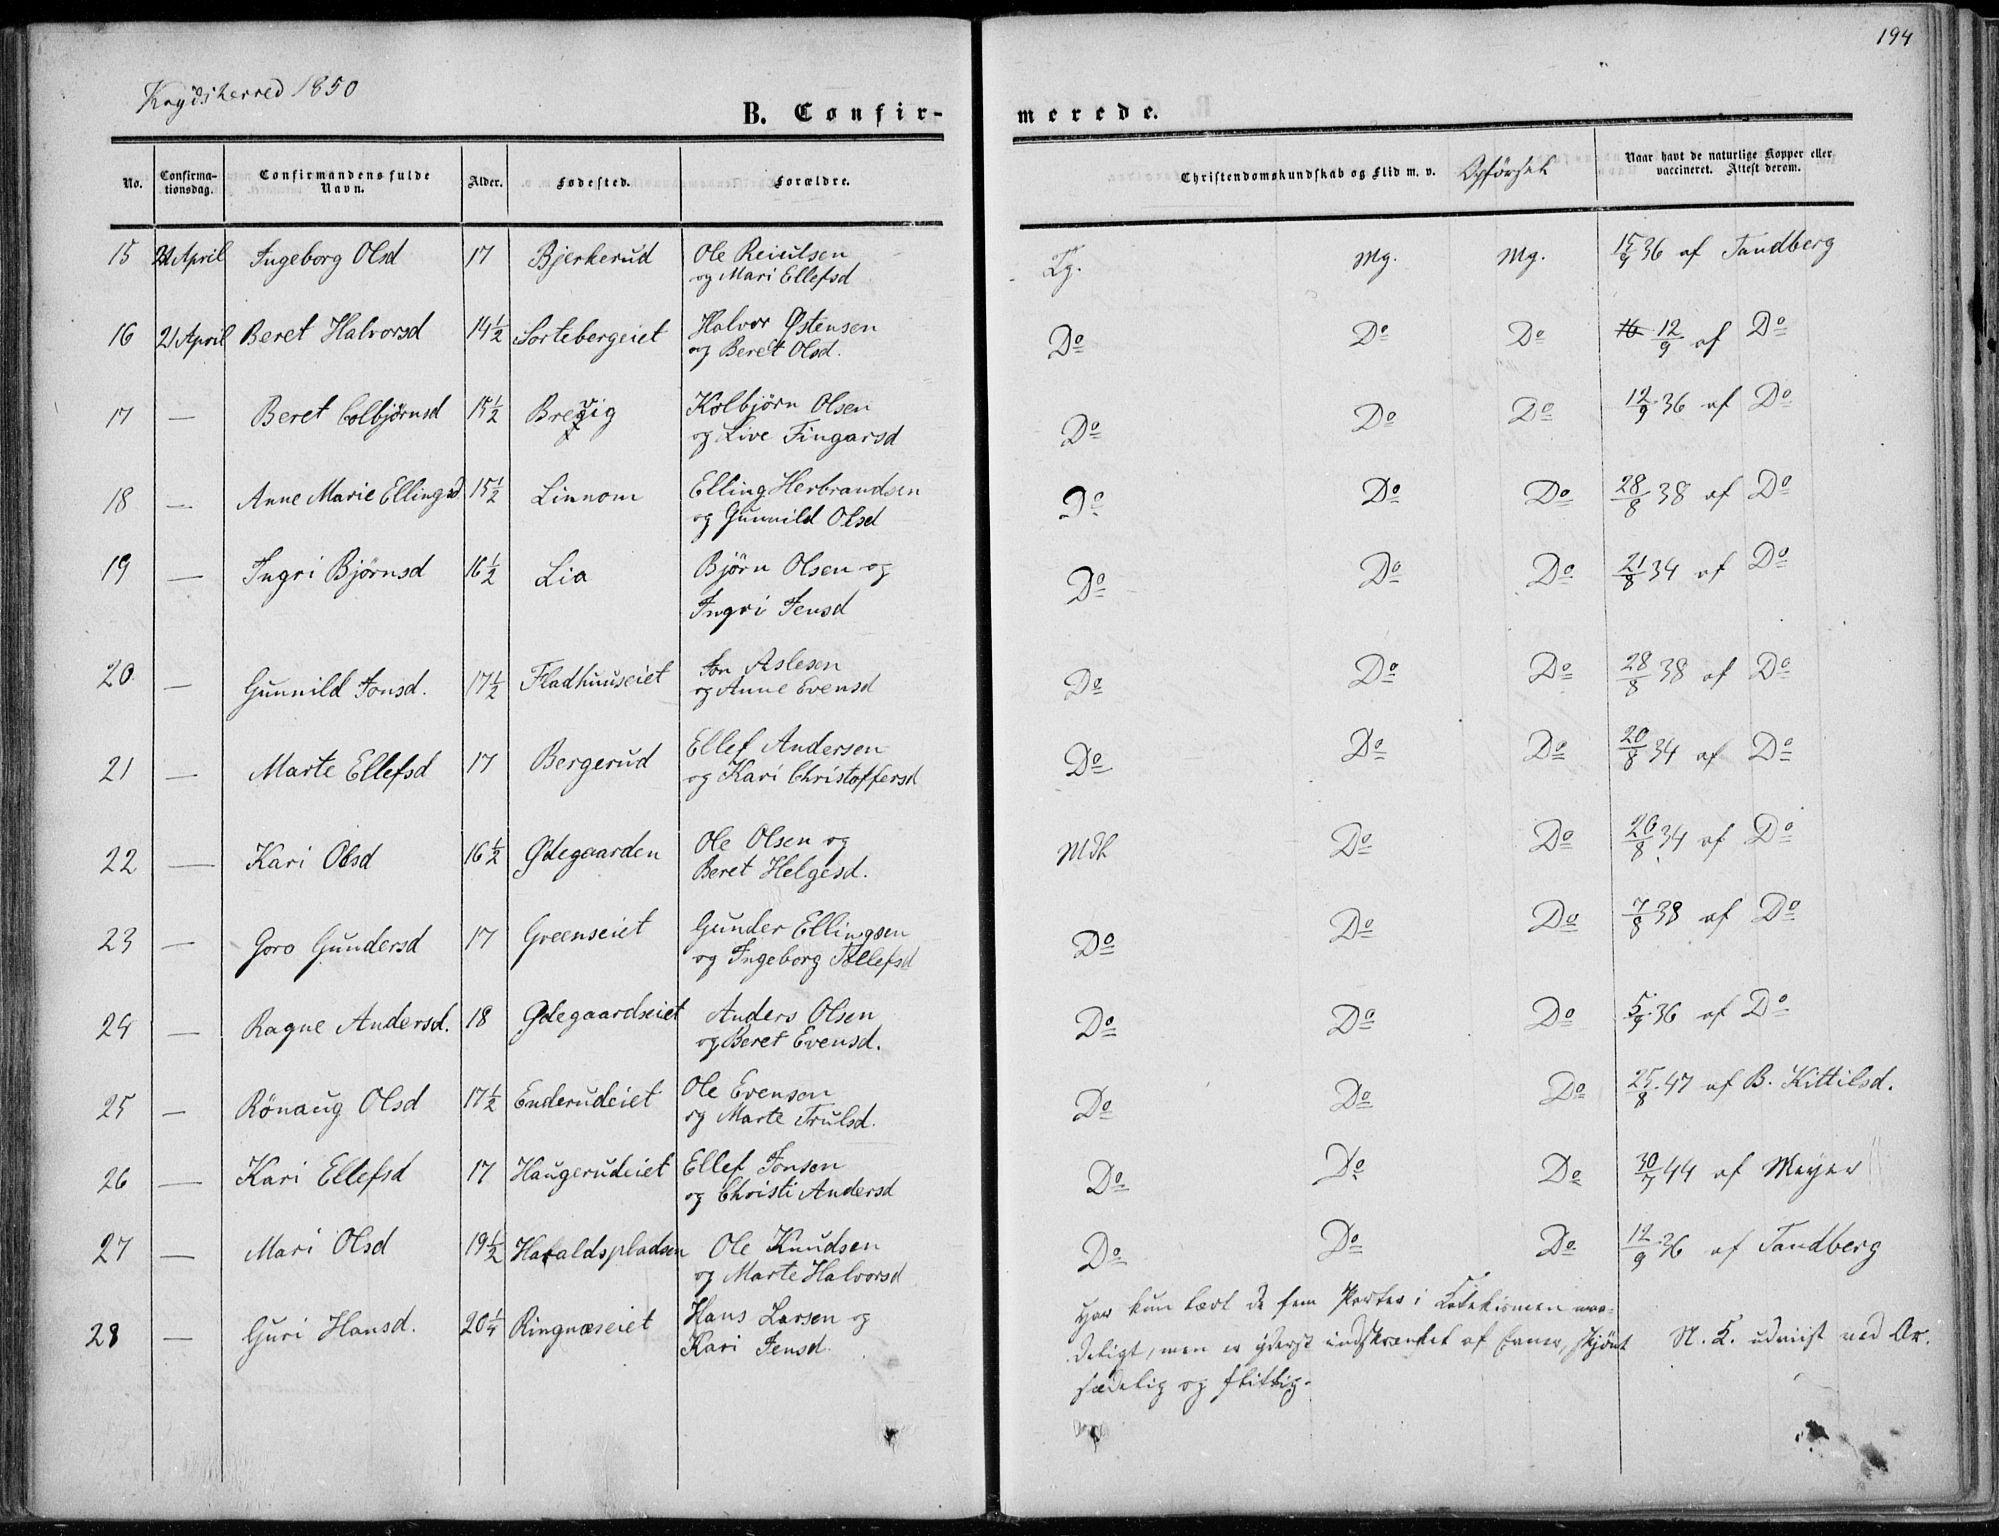 194
Krydsherred 1850
B. Confir-
merede.
No.
Confirma-
tionsdag.
Confirmandens fulde
Navn.
Alder.
Fødested.
Forældre.
Christendomskundskab og Flid m. v.
Opførsel
Naar havt de naturlige Kopper eller
vaccineret. Attest derom.
15 21 April Ingeborg Olsd 17 Bjerkerud Ole Reiulsen Tg. Mg. Mg. 15/9 36 af Tandberg
og Mari Ellefsd
16 21 April Beret Halvorsd 14 1/2 Sortebergeiet Halvor Østensen Do Do Do 12/9 af Do
og Beret Olsd.
17 — Beret Colbjørnsd 15 1/2 Brevig Kolbjørn Olsen Do Do Do 12/9 36 af Do
og Live Fingarsd
18 — Anne Marie Ellingsd 15 1/2 Linnom Elling Herbrandsen Do Do Do 28/8 38 af Do
og Gunnild Olsd
19 — Ingri Bjørnsd 16 1/2 Lia Bjørn Olsen og Do Do Do 21/8 34 af Do
Ingri Jensd
20 — Gunnild Jonsd. 17 1/2 Fladhuuseiet Jon Aslesen Do Do Do 28/8 38 af Do
og Anne Evensd
21 — Marte Ellefsd 17 Bergerud Ellef Andersen Do Do Do 20/8 34 af Do
og Kari Christoffersd
22 — Kari Olsd 16 1/2 Ødegaarden Ole Olsen og Mdh Do Do 20/8 34 af Do
Beret Helgesd.
23 — Goro Gundersd 17 Greenseiet Gunder Ellingsen Do Do Do 7/8 38 af Do
og Ingeborg Tollefsd
24 — Ragne Andersd. 18 Ødegaardseiet Anders Olsen Do Do Do 5/9 36 af Do
og Beret Evensd.
25 — Rönaug Olsd 17 1/2 Enderudeiet Ole Evensen Do Do Do 25/8 47 af B. Kittilsd.
og Marte Trulsd.
26 — Kari Ellefsd 17 Haugerudeiet Ellef Jonsen Do Do Do 30/7 44 af Meyer
og Christi Andersd
27 — Mari Olsd 19 1/2 Haraldspladsen Ole Knudsen Do Do Do 12/9 36 af Tandberg
og Marte Halvorsd
28 — Guri Hansd. 20 1/4 Ringnæseiet Hans Larsen og Har kun lært de fem Parter i Catekismen maa-
Kari Jensd. deligt, men er yderst indskrænket af Evner, skjönt N. K. udviist ved Ar.
sædelig og flittig.